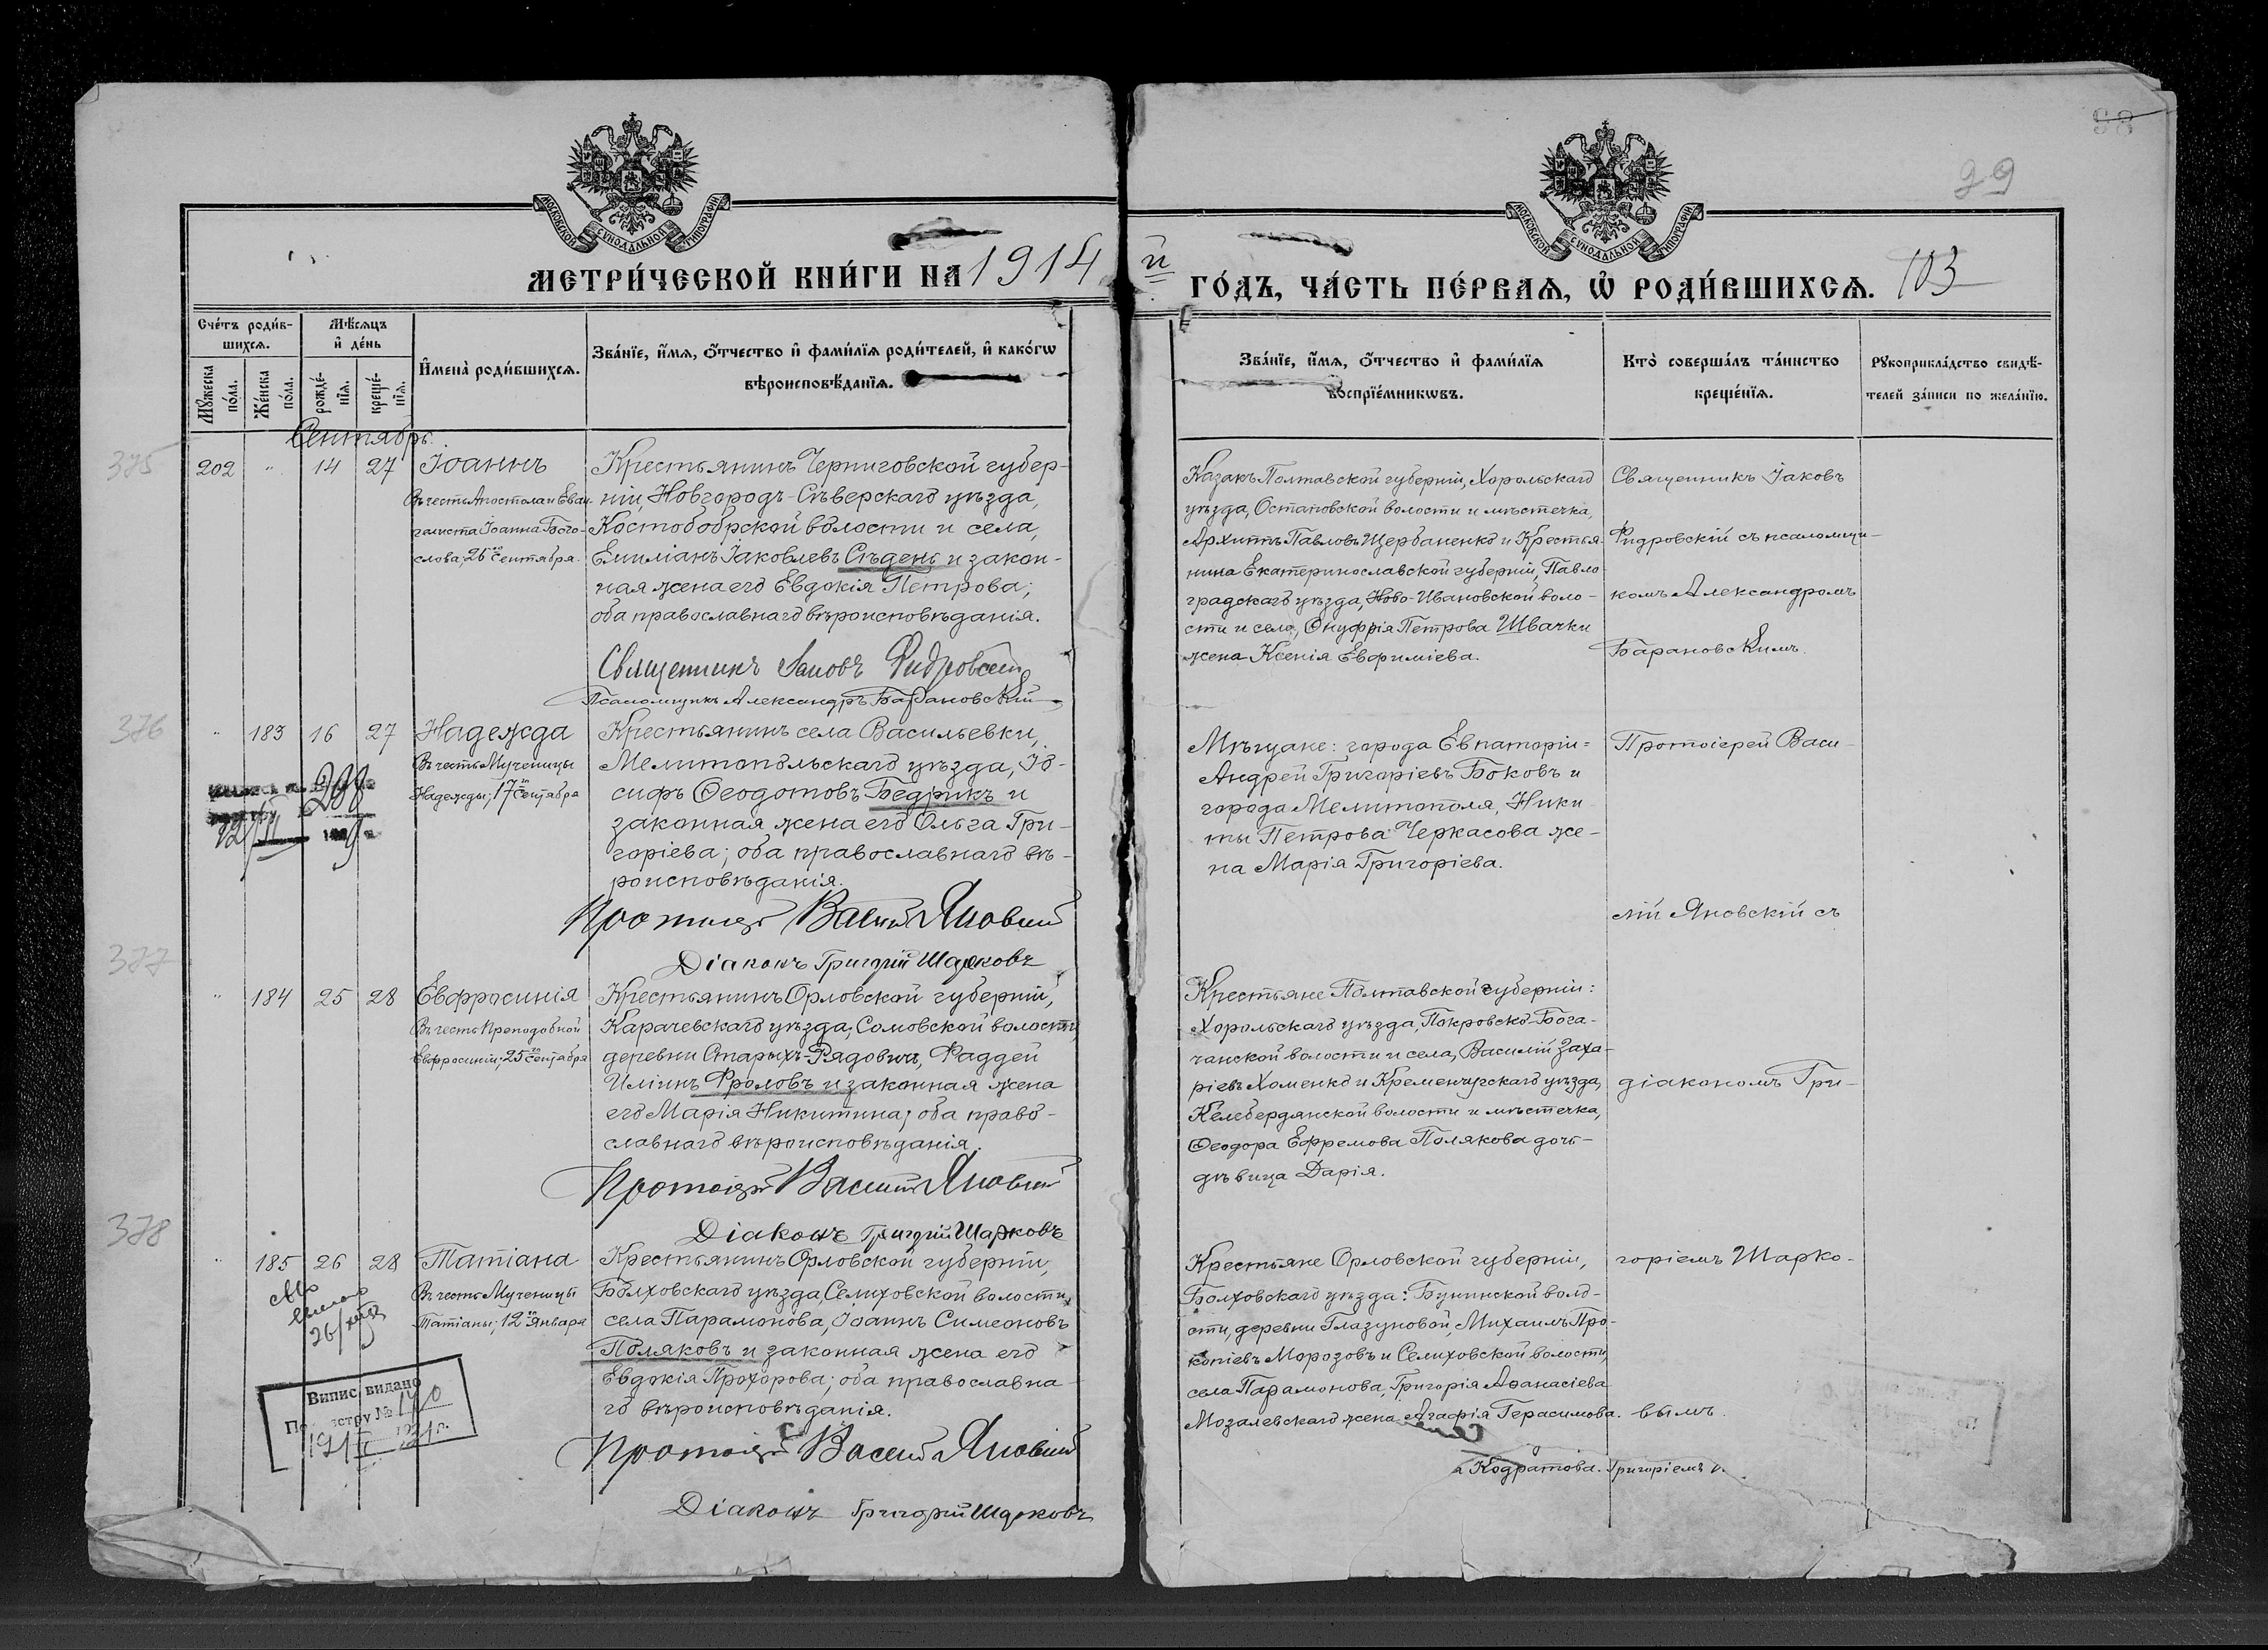 98
99
МОСКОВСКОЙ СѴНОДАЛЬНОЙ ТИПОГРАФІИ
МОСКОВСКОЙ СѴНОДАЛЬНОЙ ТИПОГРАФІИ
МЕТРИ́ЧЕСКОЙ КНИ́ГИ НА 1914 й ГО́ДЪ, ЧА́СТЬ ПЕ́РВАѦ, Ѡ҆ РОДИ́ВШИХСѦ. 103
Сче́тъ роди́в-
шихсѧ.
Мꙋ́жеска
по́ла.
Же́нска
по́ла.
Мѣ́сѧцъ
и҆ де́нь
рожде́-
нїѧ.
креще́-
нїѧ.
И҆мена̀ роди́вшихсѧ.
Зва́нїе, и҆́мѧ, ѻ҆́тчество и҆ фами́лїѧ роди́телей, и҆ како́гѡ
вѣроисповѣ́данїѧ.
Зва́нїе, и҆́мѧ, ѻ҆́тчество и҆ фами́лїѧ
воспрїе́мникѡвъ.
Кто̀ соверша́лъ та́инство
креще́нїѧ.
Рꙋкоприкла́дство свидѣ́-
телей за́писи по жела́нїю.
Сентябрь.
375
202 " 14 27 Іоаннъ
Въ честь Апостола и Еван-
гелиста Іоанна Бого-
слова, 26го Сентября.
Крестьянинъ Черниговской губер-
ніи, Новгородъ-Сѣверскаго уѣзда,
Костобобрской волости и села,
Емиліанъ Іаковлевъ Сѣдень и закон-
ная жена его Евдокія Петрова;
оба православнаго вѣроисповѣданія.
Священникъ Іаковъ Фидровскій
Псаломщикъ Александръ Барановскій
Казакъ Полтавской губерніи, Хорольскаго
уѣзда, Остаповской волости и мѣстечка,
Архипъ Павловъ Щербаненко и Крестья-
нина Екатеринославской губерніи, Павло-
градскаго уѣзда, Ново-Ивановской воло-
сти и села, Онуфрія Петрова Швачки
жена Ксенія Евфиміева.
Священникъ Іаковъ
Фидровскій съ псаломщи-
комъ Александромъ
Барановскимъ.
376
" 183 16 27 Надежда
Въ честь Мученицы
Надежды; 17го Сентября
Крестьянинъ села Васильевки,
Мелитопольскаго уѣзда, Іо-
сифъ Ѳеодотовъ Бедрикъ и
законная жена его Ольга Гри-
горіева; оба православнаго вѣ-
роисповѣданія.
Протоіерей Василій Яновскій
Діаконъ Григорій Шарковъ
Мѣщане: города Евпаторіи-
Андрей Григоріевъ Боковъ и
города Мелитополя, Ники-
ты Петрова Черкасова же-
на Марія Григоріева.
Протоіерей Васи-
лій Яновскій съ
377
" 184 25 28 Евфросинія
Въ честь Преподобной
Евфросиніи; 25го Сентября
Крестьянинъ Орловской губерніи,
Карачевскаго уѣзда, Сомовской волости,
деревни Старыхъ-Рядовичъ, Фаддей
Иліинъ Фроловъ и законная жена
его Марія Никитина; оба право-
славнаго вѣроисповѣданія.
Протоіерей Василій Яновскій
Діаконъ Григорій Шарковъ
Крестьяне Полтавской губерніи:
Хорольскаго уѣзда, Покровско-Бога-
чанской волости и села, Василій Заха-
ріевъ Хоменко и Кременчугскаго уѣзда,
Келебердянской волости и мѣстечка,
Ѳеодора Ефремова Полякова дочь-
дѣвица Дарія.
діакономъ Гри-
378
" 185 26 28 Татіана
Въ честь Мученицы
Татіаны; 12го Января
Крестьянинъ Орловской губерніи,
Болховскаго уѣзда, Селиховской волости,
села Парамонова, Іоаннъ Симеоновъ
Поляковъ и законная жена его
Евдокія Прохорова; оба православна-
го вѣроисповѣданія.
Протоіерей Василій Яновскій
Діаконъ Григорій Шарковъ
Крестьяне Орловской губерніи,
Болховскаго уѣзда: Бунинской воло-
сти, деревни Глазуновой, Михаилъ Про-
копіевъ Морозовъ и Селиховской волости,
села Парамонова, Григорія Аѳанасіева
Мозалевскаго жена Агафія Герасимова.
горіемъ Шарко-
вымъ.
Випис видано
№ 140
Кодратова. Григоріемъ